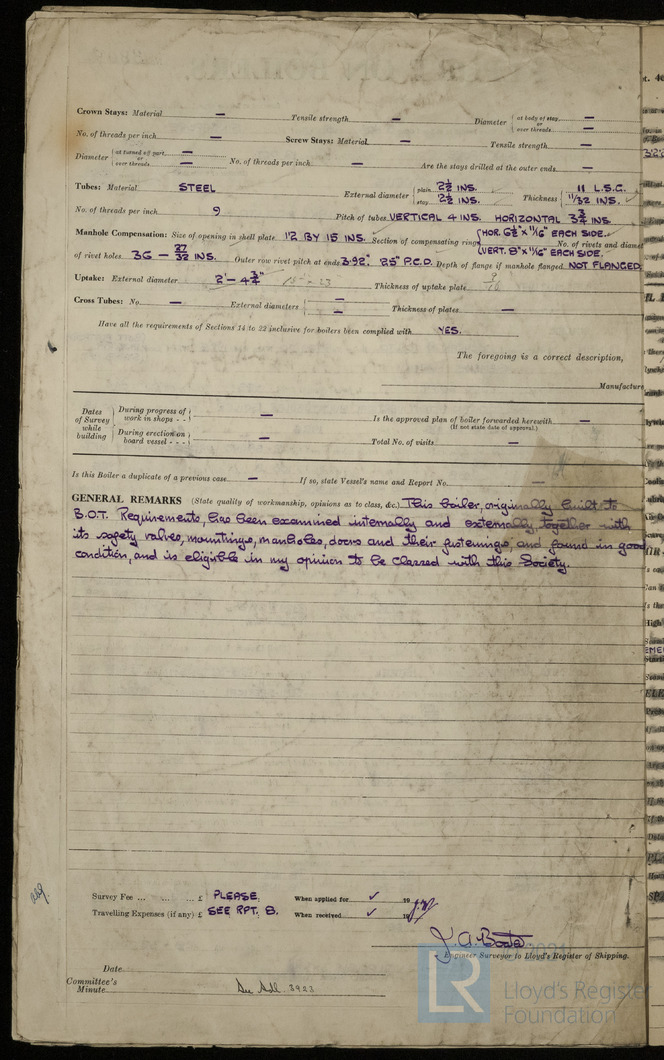 Crown Stays: Material — Tensile strength — Diameter { at body of stay, — or over threads —
No. of threads per inch — Screw Stays: Material — Tensile strength —
Diameter { at turned off part, — or over threads — No. of threads per inch — Are the stays drilled at the outer ends —
Tubes: Material STEEL External diameter { plain 2½ INS. stay 2½ INS. Thickness { 11 L.S.G. 11/32 INS.
No. of threads per inch 9 Pitch of tubes VERTICAL 4 INS. HORIZONTAL 3¾ INS
Manhole Compensation: Size of opening in shell plate 12 BY 15 INS. Section of compensating ring { HOR. 6½" x 11/16" EACH SIDE. VERT. 8" x 11/16" EACH SIDE. No. of rivets and diamet
of rivet holes 36 — 27/32 INS. Outer row rivet pitch at ends 3.92" 25" P.C.D. Depth of flange if manhole flanged NOT FLANGED
Uptake: External diameter 2' - 4¾" Thickness of uptake plate 9/16
Cross Tubes: No. — External diameters { — — Thickness of plates —
Have all the requirements of Sections 14 to 22 inclusive for boilers been complied with YES.
The foregoing is a correct description,
Manufacture
Dates of Survey while building { During progress of work in shops - - — Is the approved plan of boiler forwarded herewith — (If not state date of approval.)
During erection on board vessel - - - — Total No. of visits —
Is this Boiler a duplicate of a previous case — If so, state Vessel's name and Report No. —
GENERAL REMARKS (State quality of workmanship, opinions as to class, &c.) This boiler, originally built to
B.O.T. Requirements, has been examined internally and externally, together with
its safety valves, mountings, manholes, doors and their fastenings, and found in good
condition, and is eligible in my opinion to be classed with this Society.
Survey Fee ... ... ... £ PLEASE When applied for ✓ 19
Travelling Expenses (if any) £ SEE RPT. 8. When received ✓ 19
Engineer Surveyor to Lloyd's Register of Shipping.
Date
Committee's Minute
3923
LR
Lloyd's Register
Foundation